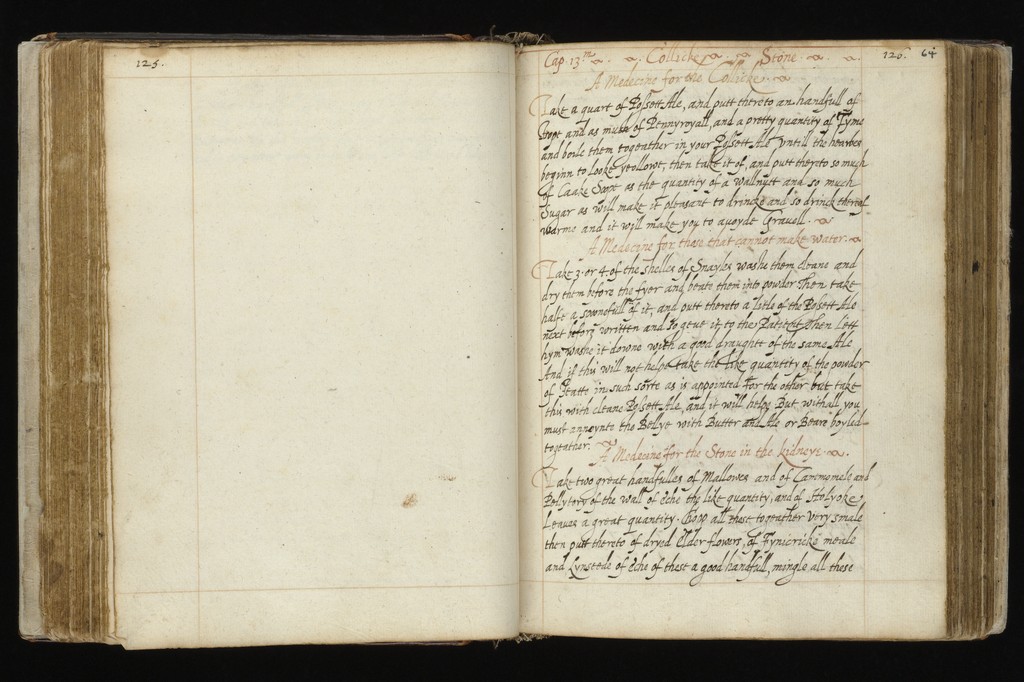 125.
Cap. 13th Collicke Stone. 126. 64
A Medecine for the Collicke.
Take a quart of Possett Ale, and putt thereto an handfull of
and as much of Pennyroyall, and a pretty quantity of Tyme
and boile them togeather in your Possett Ale untill the hearbes
beginn to looke yeollowe, then take it of, and putt thereto so much
of Caake Sope as the quantity of a Wallnutt and so much
Sugar as will make it pleasant to drincke and so drinck thereof
warme and it will make you to avoyde Gravell.
A Medecine for those that cannot make water.
Take 3. or 4. of the shelles of Snayles washe them cleane and
dry them before the fyer and beate them into powder Then take
halfe a spoonefull of it, and putt thereto a litle of the Possett Ale
next before written and so geve it to the Patient Then lett
hym washe it downe with a good draughte of the same Ale
And if this will not helpe take the like quantity of the powder
of in such sorte as is appointed for the other but take
this with cleane Possett Ale, and it will helpe But withall you
must annoynte the Bellye with Butter and Ale or Beare boyled
togeather.
A Medecine for the Stone in the kidneys.
Take two great handfulles of Mallowes and of Cammomale and
Pellytory of the wall of eche the like quantity, and of Holyoke
Leaves a great quantity. Chopp all these togeather very smale
then putt thereto of dryed Elder flowers, of Fynicricke meale
and Lynseede of eche of these a good handfull, mingle all these